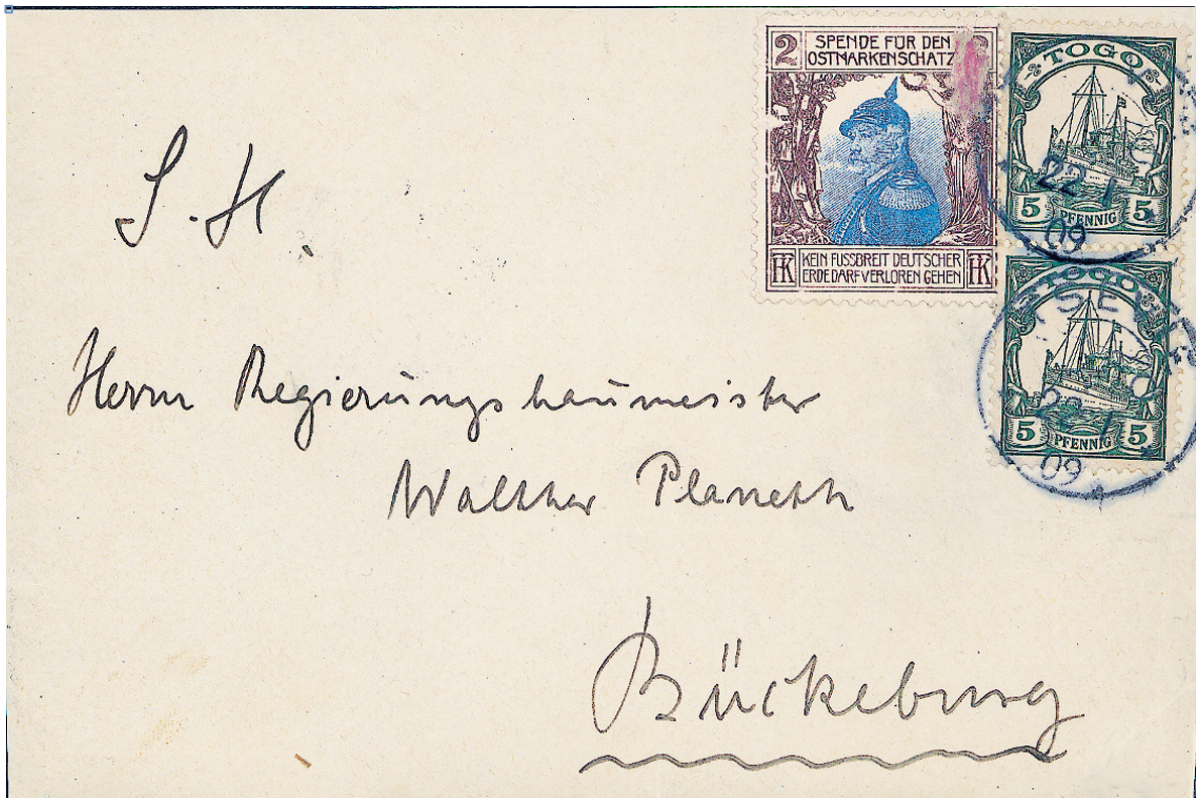 2 SPENDE FÜR DEN
OSTMARKENSCHATZ
HK KEIN FUSSBREIT DEUTSCHER HK
ERDE DARF VERLOREN GEHEN
TOGO
5 PFENNIG 5
22 1
09
TOGO
5 PFENNIG 5
22 1
09
S. H
Herrn Regierungsbaumeister
Walther Planeth
Bückeburg